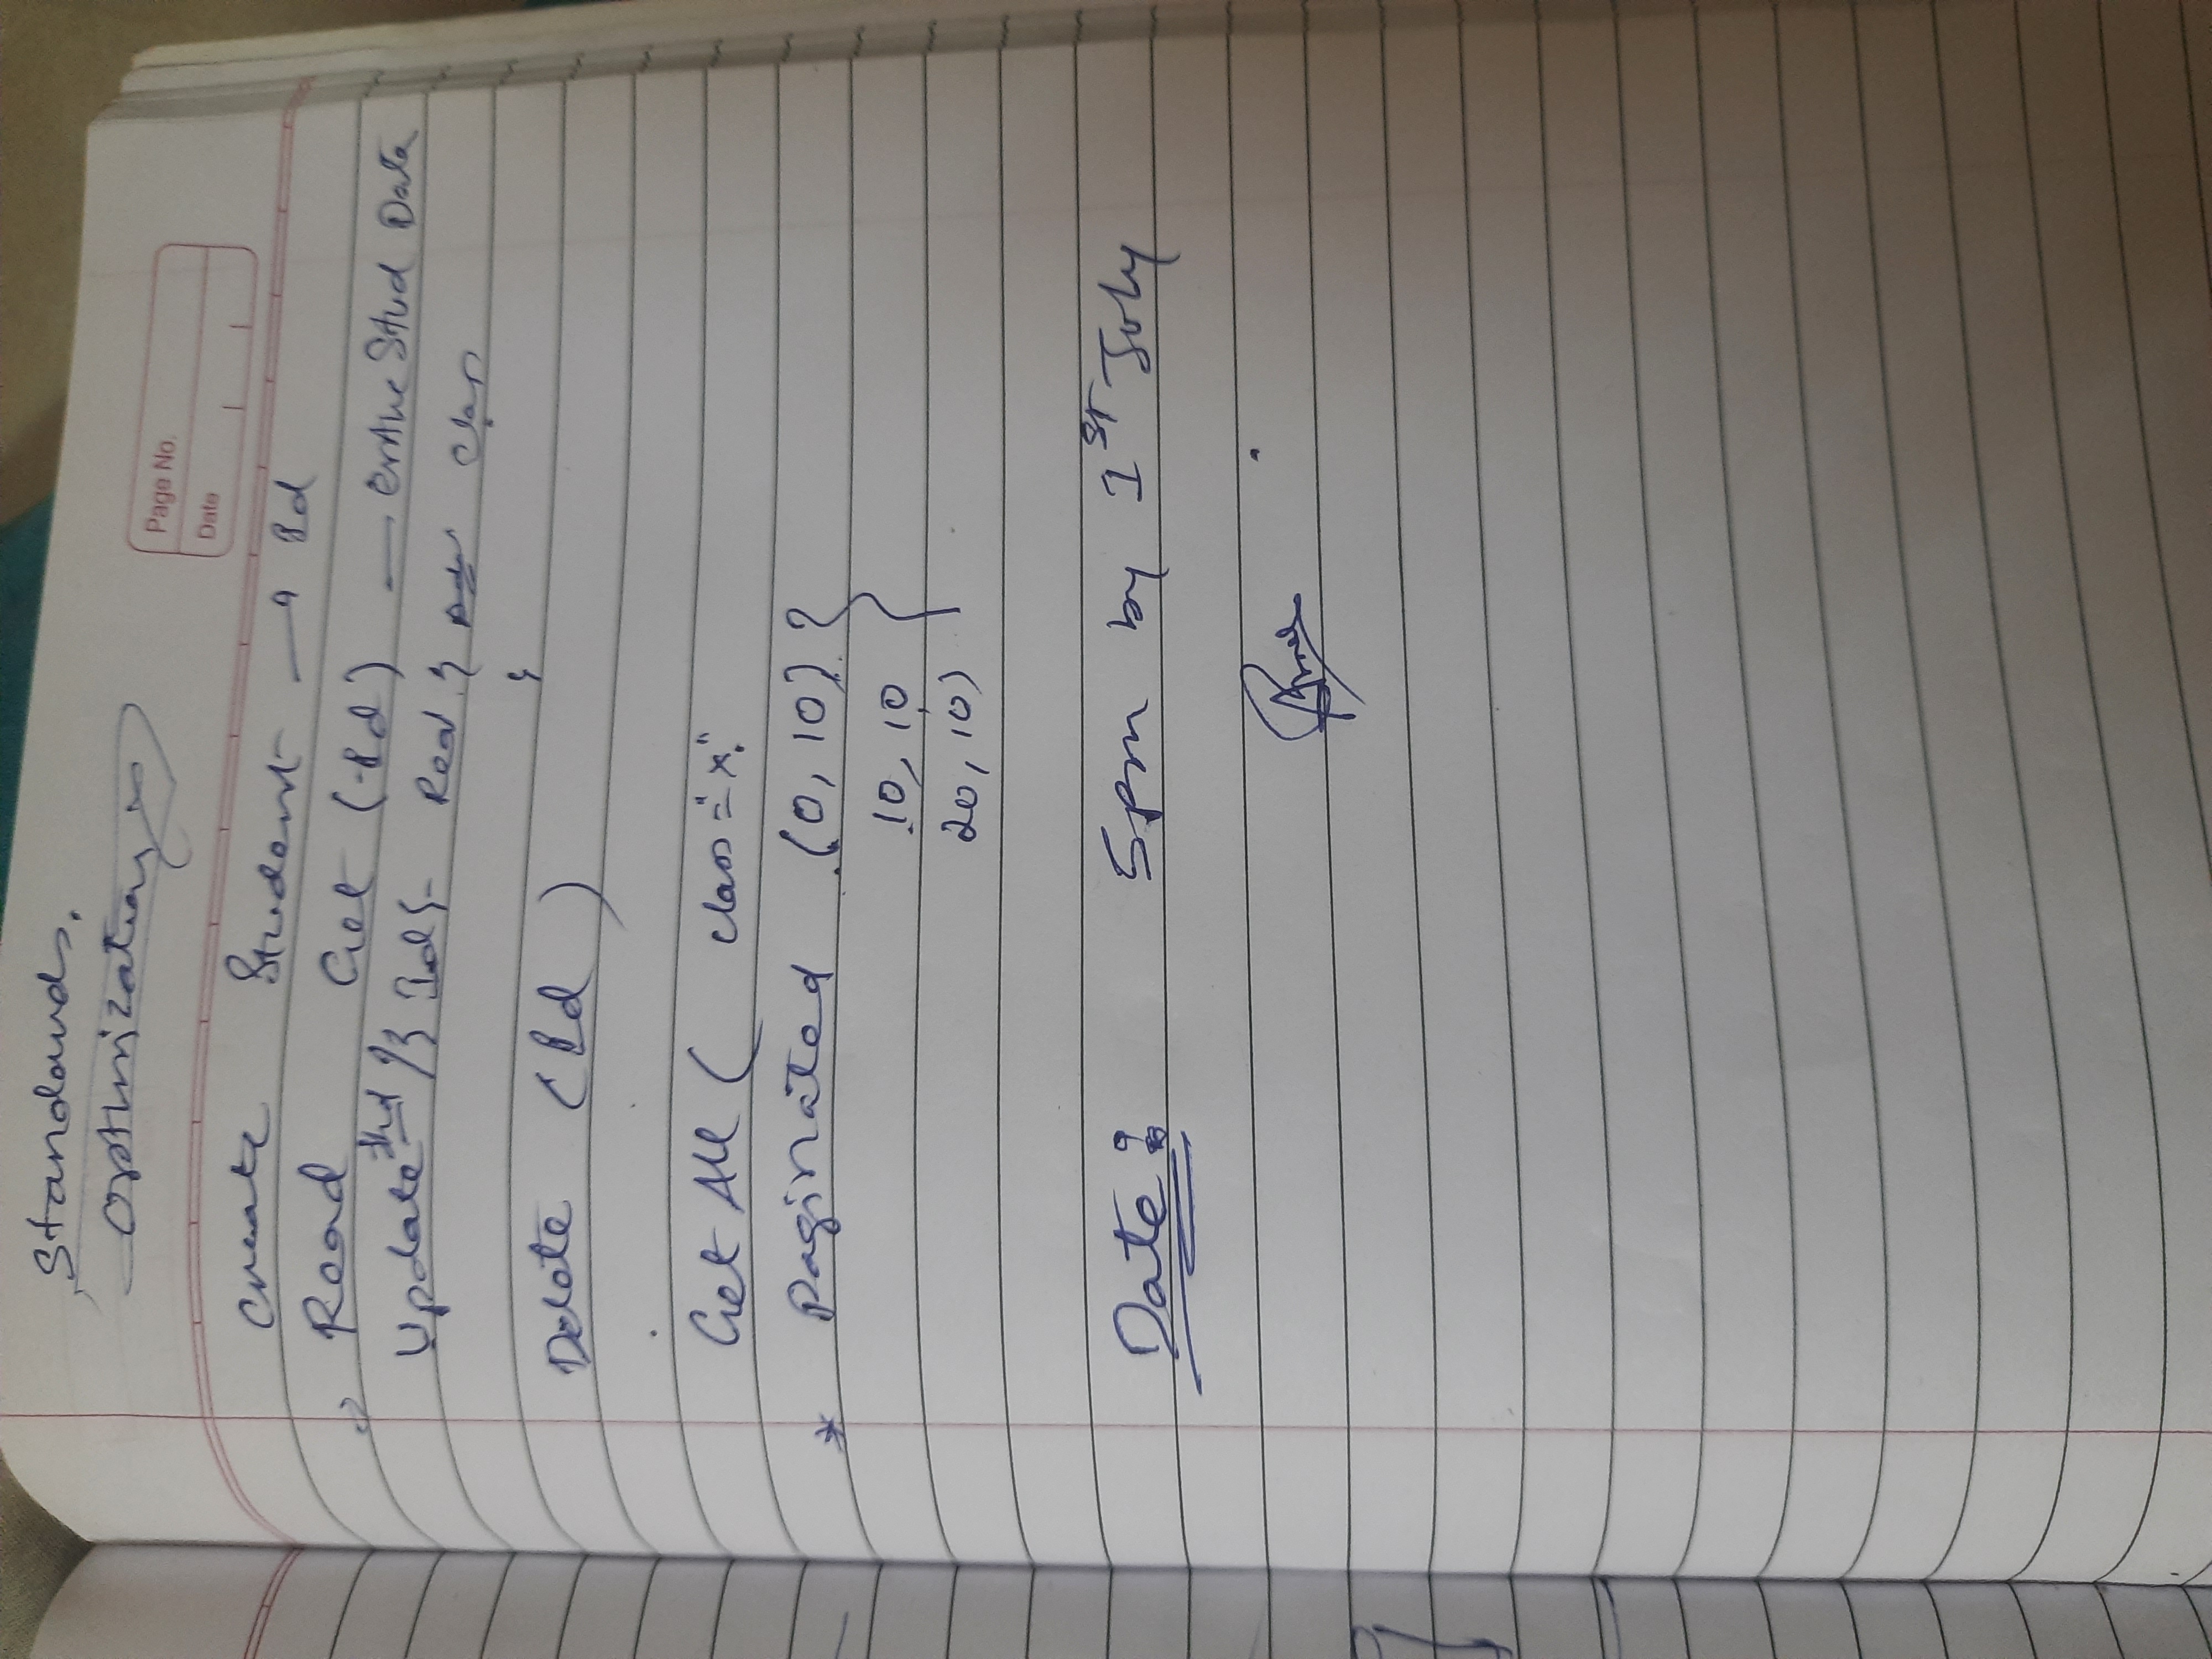 Standards.
Optimization
Page No.
Date
Create Student → Id
Read Get (Id) — entire Stud Data
Update Id Read class
Delete (Id)
Get All ( class = "x"
* Paginated (0, 10) }
10, 10
20, 10)
Date: 5pm by 1st July